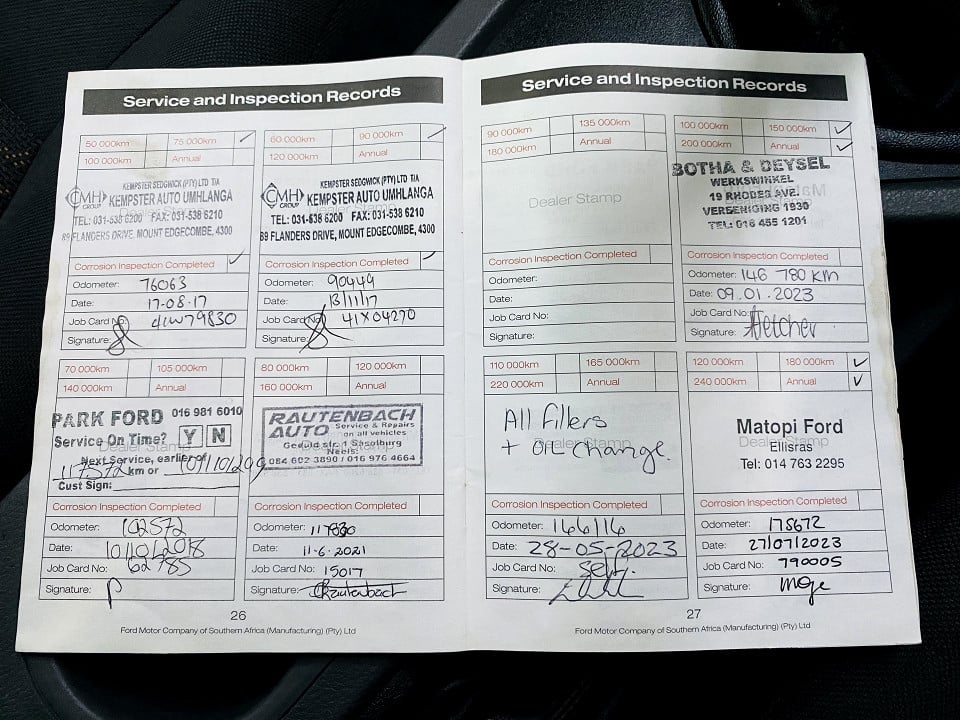 Service and Inspection Records
50 000km 75 000km ✓
100 000km Annual
CMH GROUP
KEMPSTER SEDGWICK (PTY) LTD T/A
KEMPSTER AUTO UMHLANGA
TEL: 031-538 6200 FAX: 031-538 6210
89 FLANDERS DRIVE, MOUNT EDGECOMBE, 4300
Corrosion Inspection Completed ✓
Odometer: 76063
Date: 17-08-17
Job Card No: 41W79830
Signature:
60 000km 90 000km ✓
120 000km Annual
CMH GROUP
KEMPSTER SEDGWICK (PTY) LTD T/A
KEMPSTER AUTO UMHLANGA
TEL: 031-538 6200 FAX: 031-538 6210
89 FLANDERS DRIVE, MOUNT EDGECOMBE, 4300
Corrosion Inspection Completed ✓
Odometer: 90449
Date: 13/11/17
Job Card No: 41X04270
Signature:
70 000km 105 000km
140 000km Annual
PARK FORD 016 981 6010
Service On Time? Y N
Dealer Stamp
Next Service, earlier of
117572 km or
Cust Sign:
Corrosion Inspection Completed
Odometer: 102572
Date: 10/10/2018
Job Card No: 62785
Signature:
80 000km 120 000km
160 000km Annual
RAUTENBACH
AUTO Service & Repairs
on all vehicles
Geduld str. 1 Sasolburg
Neels:
084 602 3890 / 016 976 4664
Corrosion Inspection Completed
Odometer: 117830
Date: 11-6-2021
Job Card No: 15017
Signature: Rautenbach
26
Ford Motor Company of Southern Africa (Manufacturing) (Pty) Ltd
Service and Inspection Records
90 000km 135 000km
180 000km Annual
Dealer Stamp
Corrosion Inspection Completed
Odometer:
Date:
Job Card No:
Signature:
100 000km 150 000km ✓
200 000km Annual ✓
BOTHA & DEYSEL
WERKSWINKEL
19 RHODES AVE.
VEREENIGING 1930
TEL: 016 455 1201
Corrosion Inspection Completed
Odometer: 146 780 KM
Date: 09.01.2023
Job Card No:
Signature:
110 000km 165 000km
220 000km Annual
All filters
Dealer Stamp
+ Oil change.
Corrosion Inspection Completed
Odometer: 166116
Date: 28-05-2023
Job Card No: self.
Signature:
120 000km 180 000km ✓
240 000km Annual ✓
Matopi Ford
Dealer Stamp
Ellisras
Tel: 014 763 2295
Corrosion Inspection Completed
Odometer: 178672
Date: 27/07/2023
Job Card No: 790005
Signature:
27
Ford Motor Company of Southern Africa (Manufacturing) (Pty) Ltd